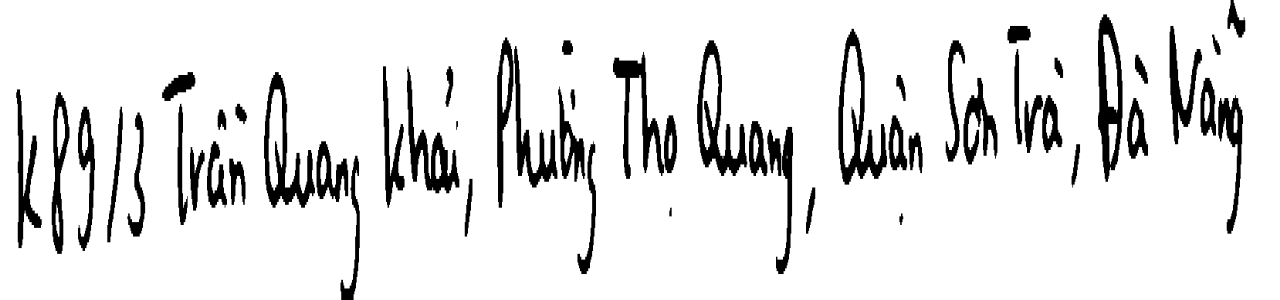 K89/3 Trần Quang Khải, Phường Thọ Quang, Quận Sơn Trà, Đà Nẵng